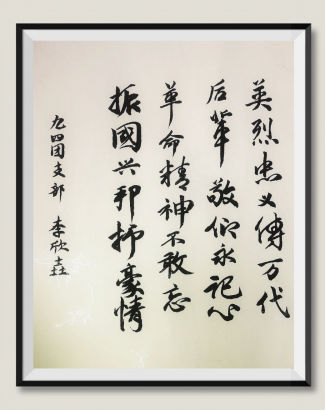 英烈忠义傳万代
后輩敬仰永記心
革命精神不敢忘
振國兴邦抒豪情
九四团支部 李欣垚